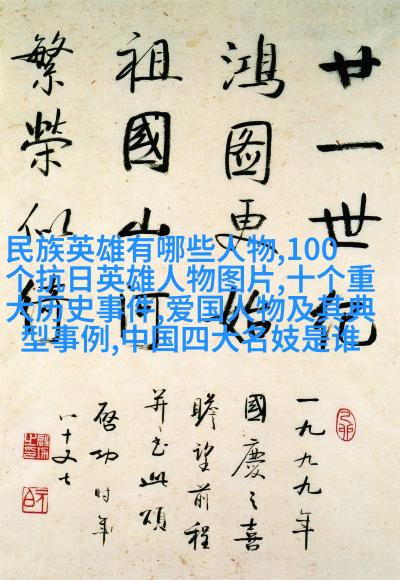 廿一世紀
鴻圖更始
祖國山河
繁榮似綺
民族英雄有哪些人物,100
个抗日英雄人物图片,十个重
大历史事件,爱国人物及其典
型事例,中国四大名妓是谁
一九九九年
國慶之喜
瞻望前程
并書此頌
啓功時年
八十又七